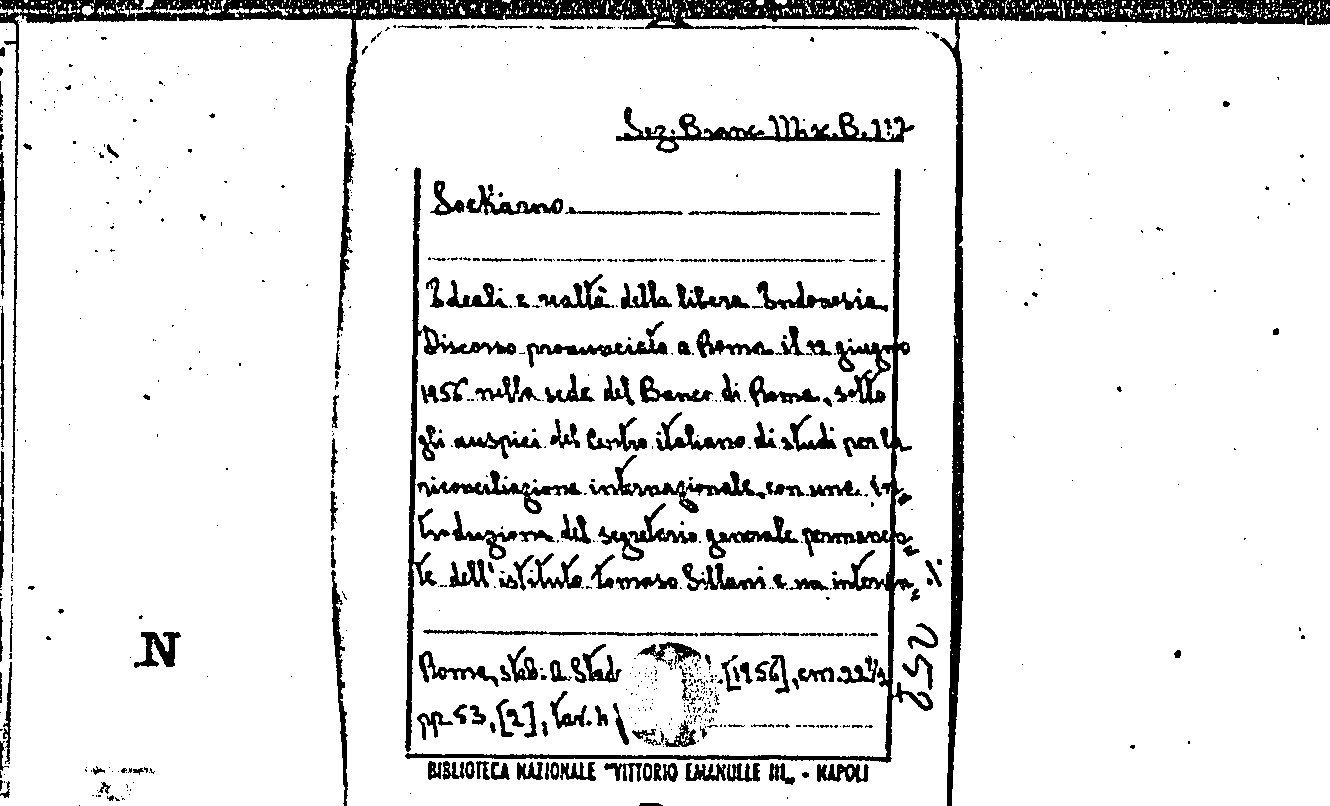 Sez. Branc. Misc. B. 117
Soekarno.
Ideali e realtà della libera Indonesia.
Discorso pronunciato a Roma il 12 giugno
1956 nella sede del Banco di Roma, sotto
gli auspici del Centro italiano di studi per la
riconciliazione internazionale, con una in=
troduzione del segretario generale permanen=
te dell'istituto Tomaso Sillani e un interve=
./.
Roma, stab. A. Stad [1956], cm. 22 1/2
pp. 53, [2], tav. 4
252
N
BIBLIOTECA NAZIONALE "VITTORIO EMANUELE III" - NAPOLI